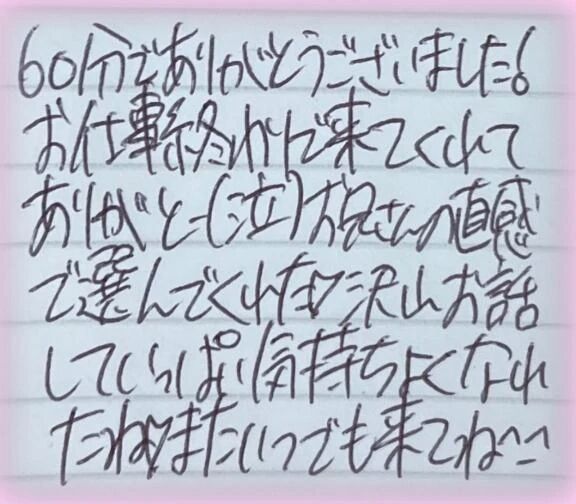 60分でありがとうございました!
お仕事終わりで来てくれて
ありがとー(泣)お兄さんの直感
で選んでくれた♡沢山お話
していっぱい気持ちよくなれ
たね♡またいつでも来てね^^